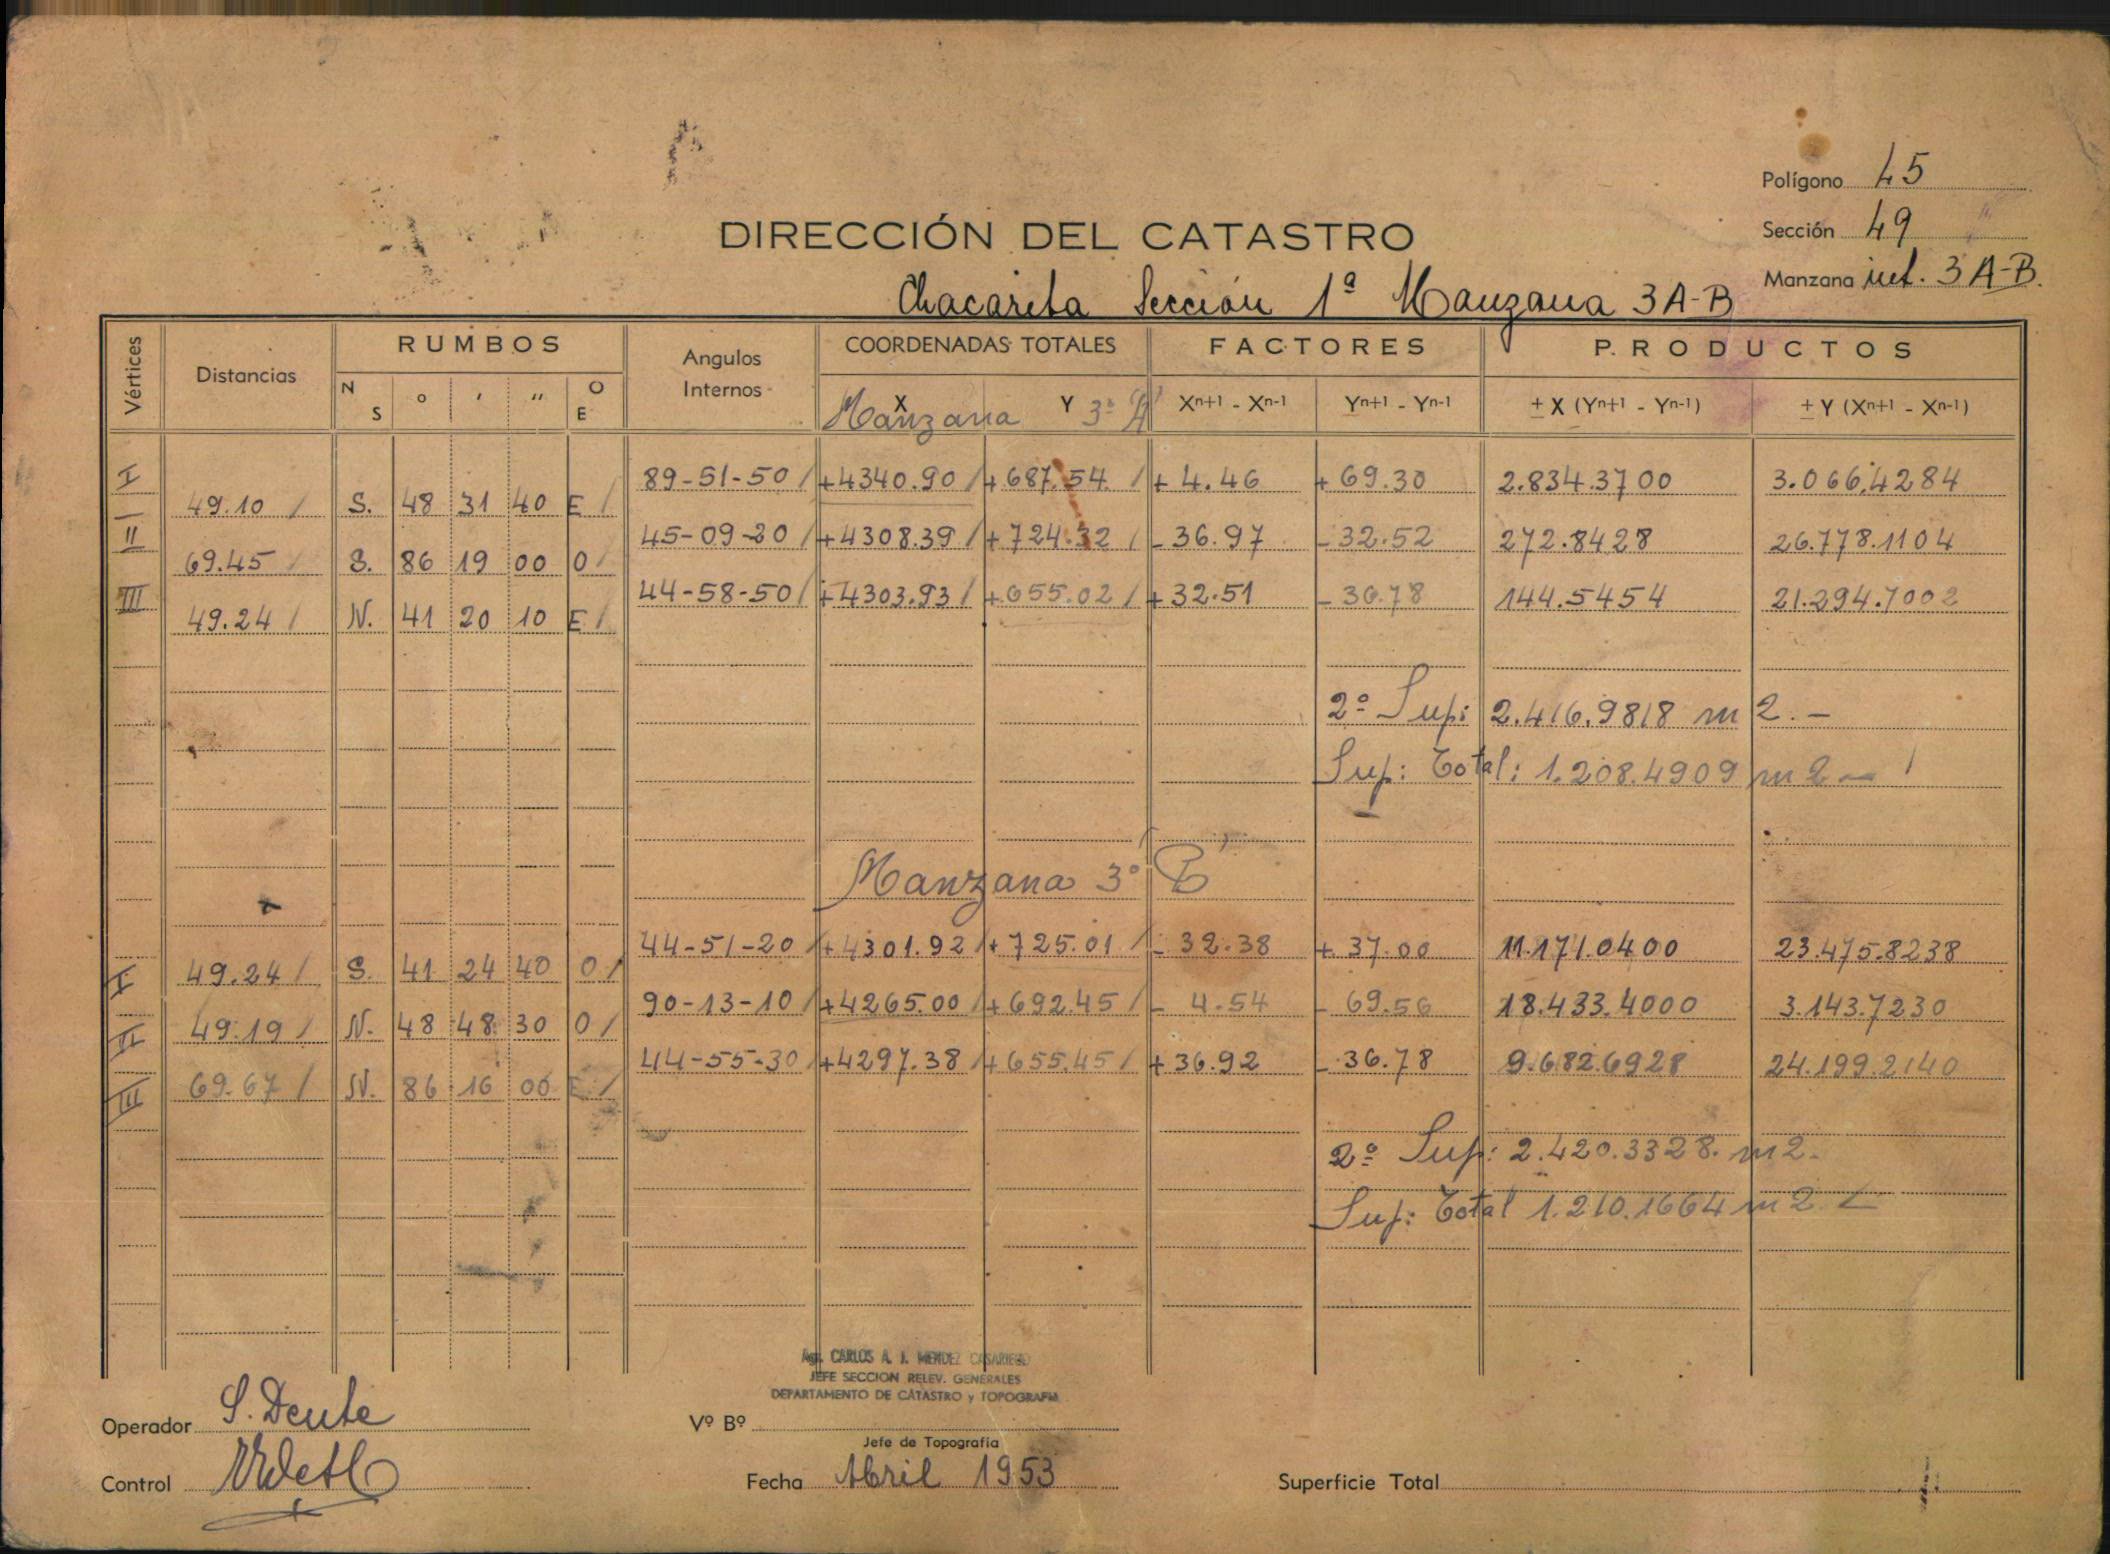 Polígono 45
DIRECCIÓN DEL CATASTRO
Sección 49
Manzana int. 3 A-B.
Chacarita Sección 1ª Manzana 3 A-B
Vértices Distancias RUMBOS Angulos Internos COORDENADAS TOTALES FACTORES PRODUCTOS
N S o ' '' O E X Y Xⁿ⁺¹ - Xⁿ⁻¹ Yⁿ⁺¹ - Yⁿ⁻¹ ± X (Yⁿ⁺¹ - Yⁿ⁻¹) ± Y (Xⁿ⁺¹ - Xⁿ⁻¹)
Manzana 3ª "A"
I 89-51-50 / +4340.90 / +687.54 / + 4.46 + 69.30 2.834.3700 3.066.4284
49.10 / S. 48 31 40 E /
II 45-09-20 / +4308.39 / +724.32 / - 36.97 - 32.52 272.8428 26.778.1104
69.45 / S. 86 19 00 O /
III 44-58-50 / +4303.93 / +655.02 / + 32.51 - 36.78 144.5454 21.294.7002
49.24 / N. 41 20 10 E /
2º Sup: 2.416.9818 m2.-
Sup: Total: 1.208.4909 m2 -
Manzana 3ª "B"
44-51-20 / +4301.92 / +725.01 / - 32.38 + 37.00 11.171.0400 23.475.8238
I 49.24 / S. 41 24 40 O /
90-13-10 / +4265.00 / +692.45 / - 4.54 - 69.56 18.433.4000 3.143.7230
II 49.19 / N. 48 48 30 O /
44-55-30 / +4297.38 / +655.45 / + 36.92 - 36.78 9.682.6928 24.199.2140
III 69.67 / N. 86 16 00 E /
2º Sup: 2.420.3328. m2.
Sup: Total 1.210.1664 m2
Agr. CARLOS A. J. MENDEZ CASARIEGO
JEFE SECCION RELEV. GENERALES
DEPARTAMENTO DE CATASTRO y TOPOGRAFIA
Operador S. Dente
Vº Bº
Jefe de Topografía
Control
Fecha Abril 1953
Superficie Total